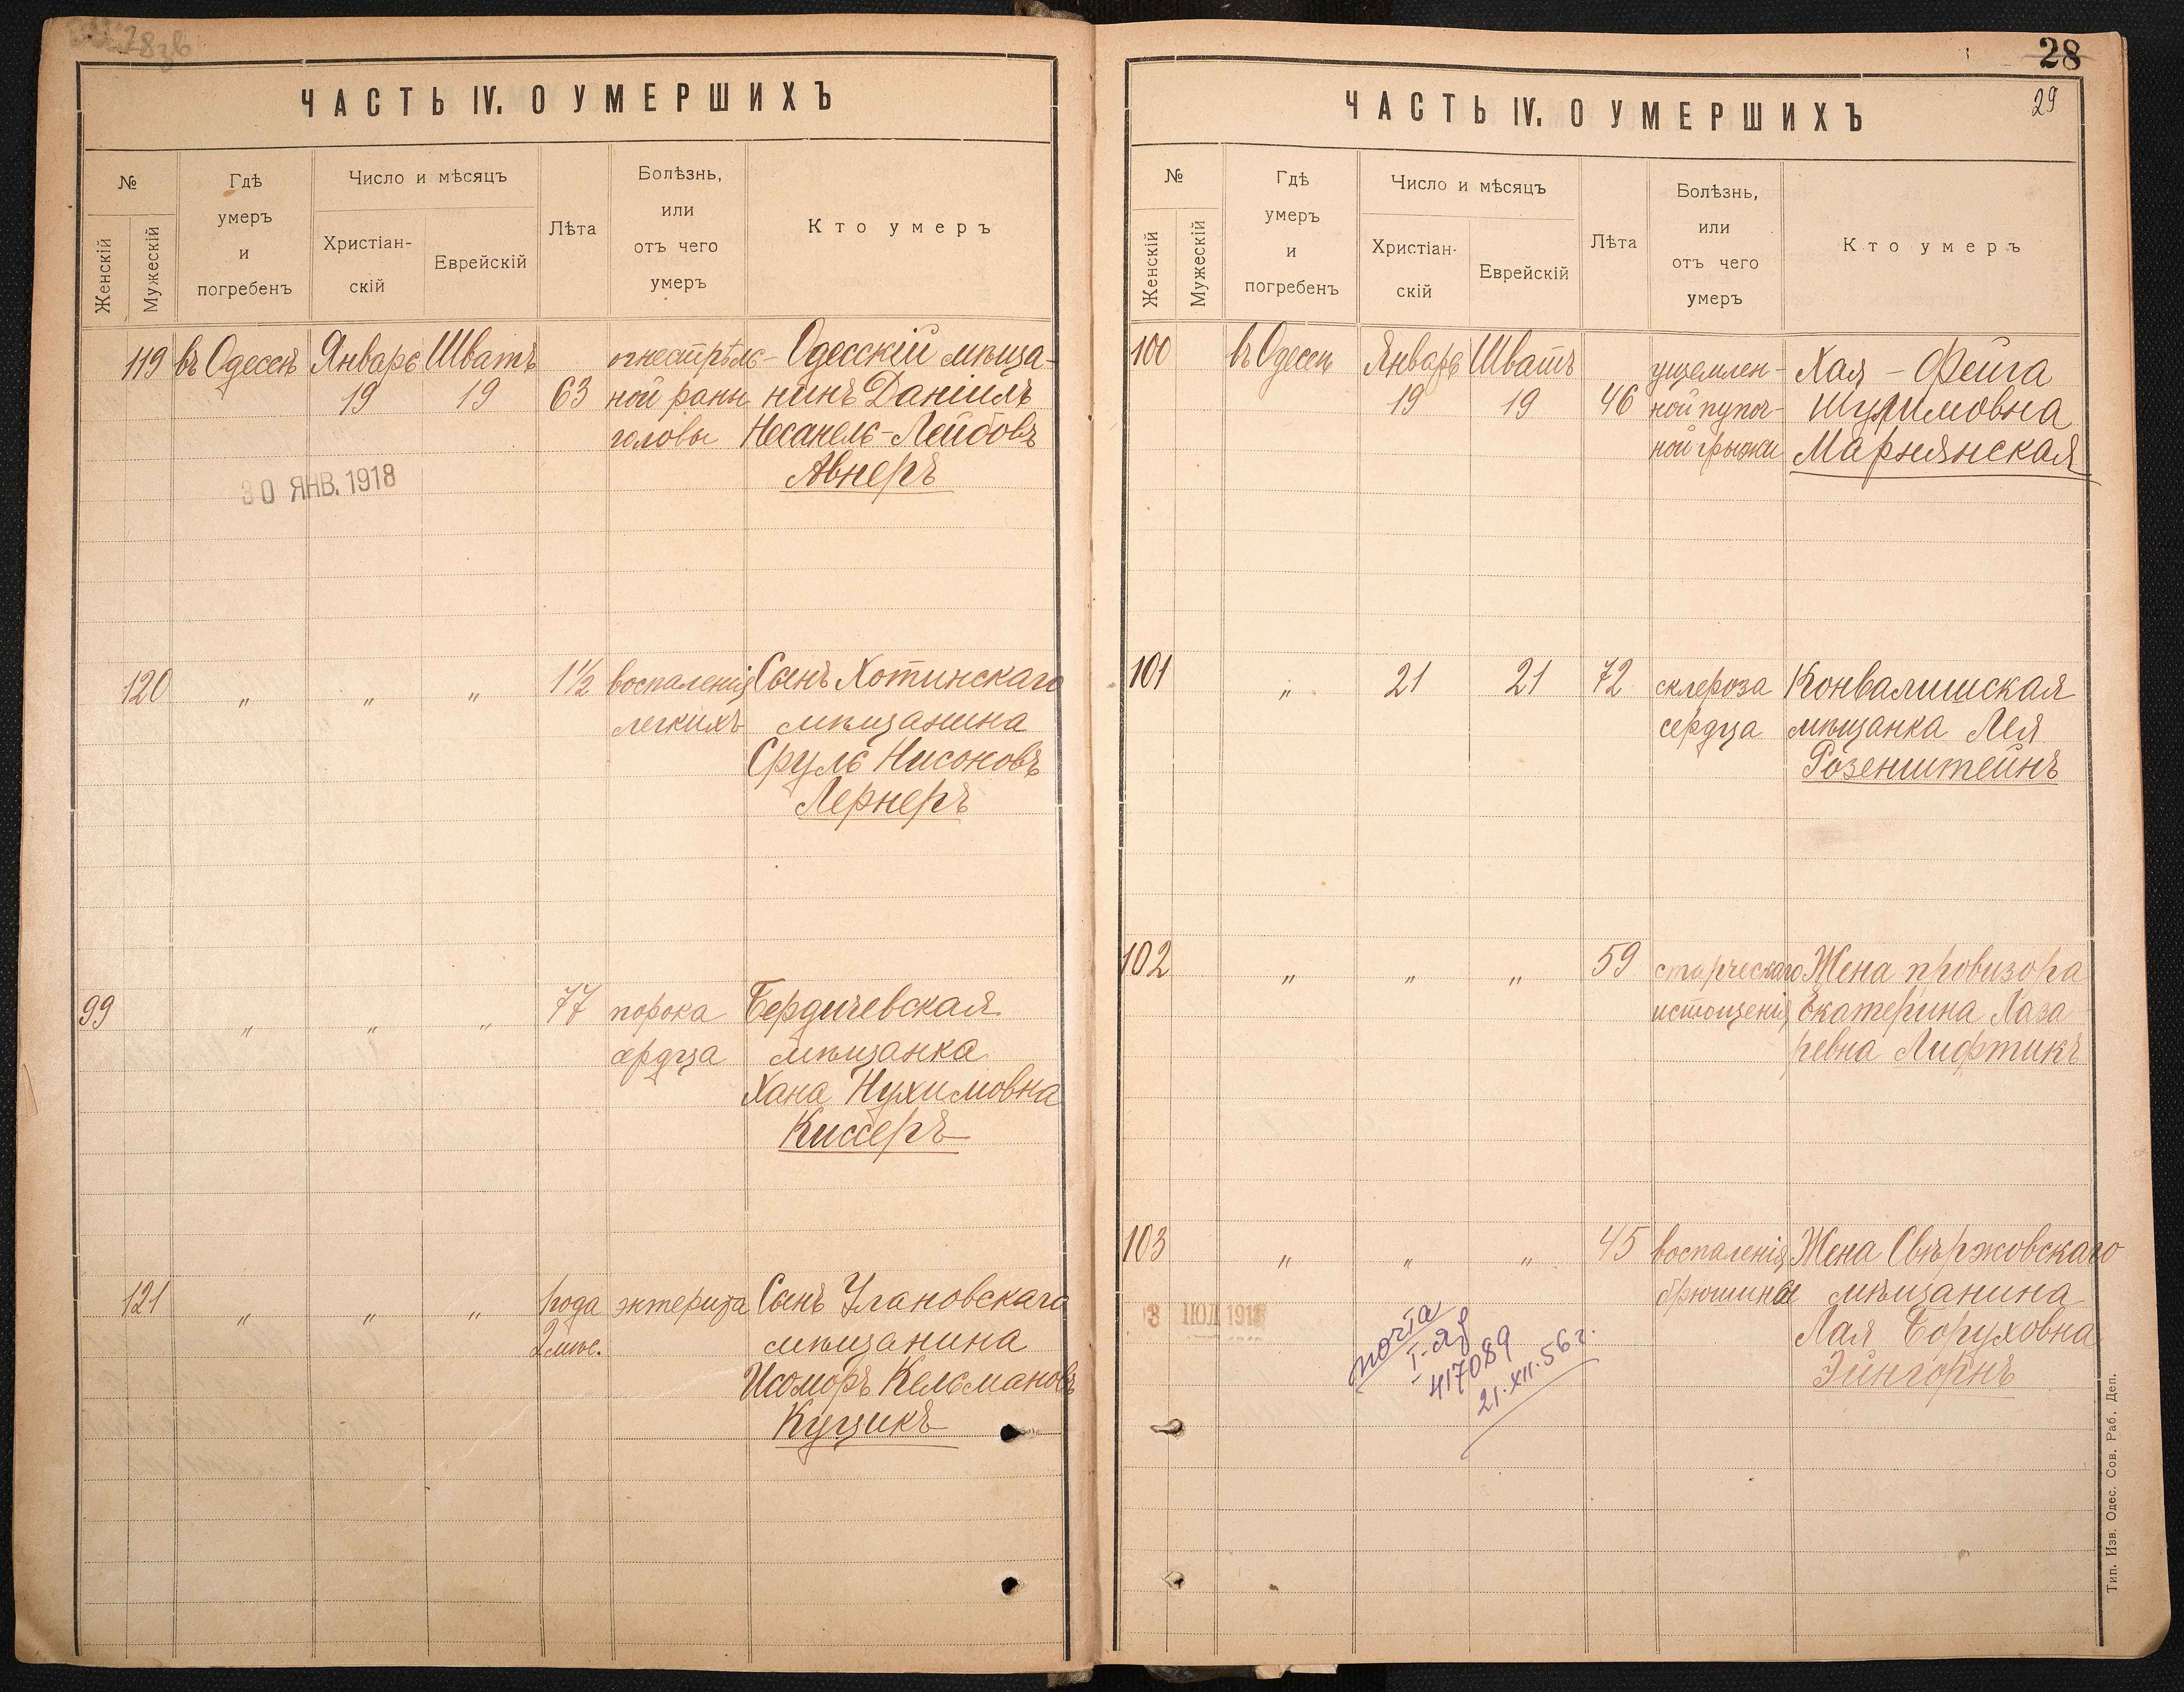 ЧАСТЬ IV. О УМЕРШИХЪ
№
Женскій
Мужескій
Гдѣ
умеръ
и
погребенъ
Число и мѣсяцъ
Христіан-
скій
Еврейскій
Лѣта
Болѣзнь,
или
отъ чего
умеръ
Кто умеръ
119 въ Одессѣ Январь Шватъ огнестрѣль- Одесскій мѣща-
19 19 63 ной раны нинъ Даніилъ
головы Несанель-Лейбовъ
Авнеръ
30 ЯНВ. 1918
120 " " " 1½ воспаленія Сынъ Хотинскаго
легкихъ мѣщанина
Сруль Нисоновъ
Лернеръ
99 " " " 77 порока Бердичевская
сердца мѣщанка
Хана Нухимовна
Киссеръ
121 " " " 1 года энтерита Сынъ Улановскаго
2 мѣс. мѣщанина
Исоморъ Кельмановъ
Куцикъ
28
29
ЧАСТЬ IV. О УМЕРШИХЪ
№
Женскій
Мужескій
Гдѣ
умеръ
и
погребенъ
Число и мѣсяцъ
Христіан-
скій
Еврейскій
Лѣта
Болѣзнь,
или
отъ чего
умеръ
Кто умеръ
100 въ Одессѣ Январь Шватъ ущемлен- Хая-Фейга
19 19 46 ной пупоч- Шулимовна
ной грыжи Марьянская
101 " 21 21 72 склероза Конвалишская
сердца мѣщанка Лея
Розенштейнъ
102 " " " 59 старческаго Жена провизора
истощенія Екатерина Лаза
ревна Лифтикъ
103 " " " 45 воспаленія Жена Свѣржовскаго
брюшины мѣщанина
Лая Боруховна
Эйнгорнъ
3 ІЮЛ 1918
почта
417089
21.XII.56 г.
Тип. Изв. Одес. Сов. Раб. Деп.